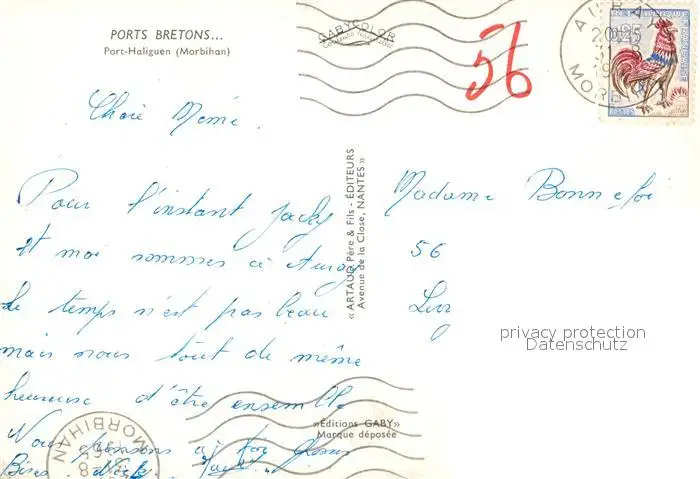 PORTS BRETONS...
Port-Haliguen (Morbihan)
GABYCOLOR
56
AURAY
MORBIHAN
Chère Mémé
Pour l'instant Jacky
et moi sommes à Auray
le temps n'est pas beau
mais nous tout de même
heureuse d'être ensemble
Nous pensons à toy Grosses
Bises
« ARTAUD Père & Fils - ÉDITEURS
Avenue de la Close, NANTES »
Madame Bonnefoi
56
privacy protection
Datenschutz
»Éditions GABY»
Marque déposée
MORBIHAN